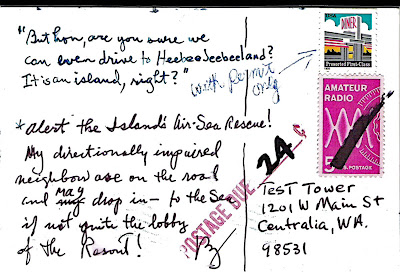 "But hon, are you sure we
can even drive to HeebeeJeebeeland?
It is an island, right?"
with permit
only
*Alert the Island's Air-Sea Rescue!
My directionally impaired
neighbors are on the road
and may drop in – to the Sea
if not quite the lobby
of the Resort!
USA
DINER
Presorted First-Class
AMATEUR
RADIO
5
U.S. POSTAGE
POSTAGE DUE 24 ¢
TesT Tower
1201 W Main St
Centralia, WA.
98531